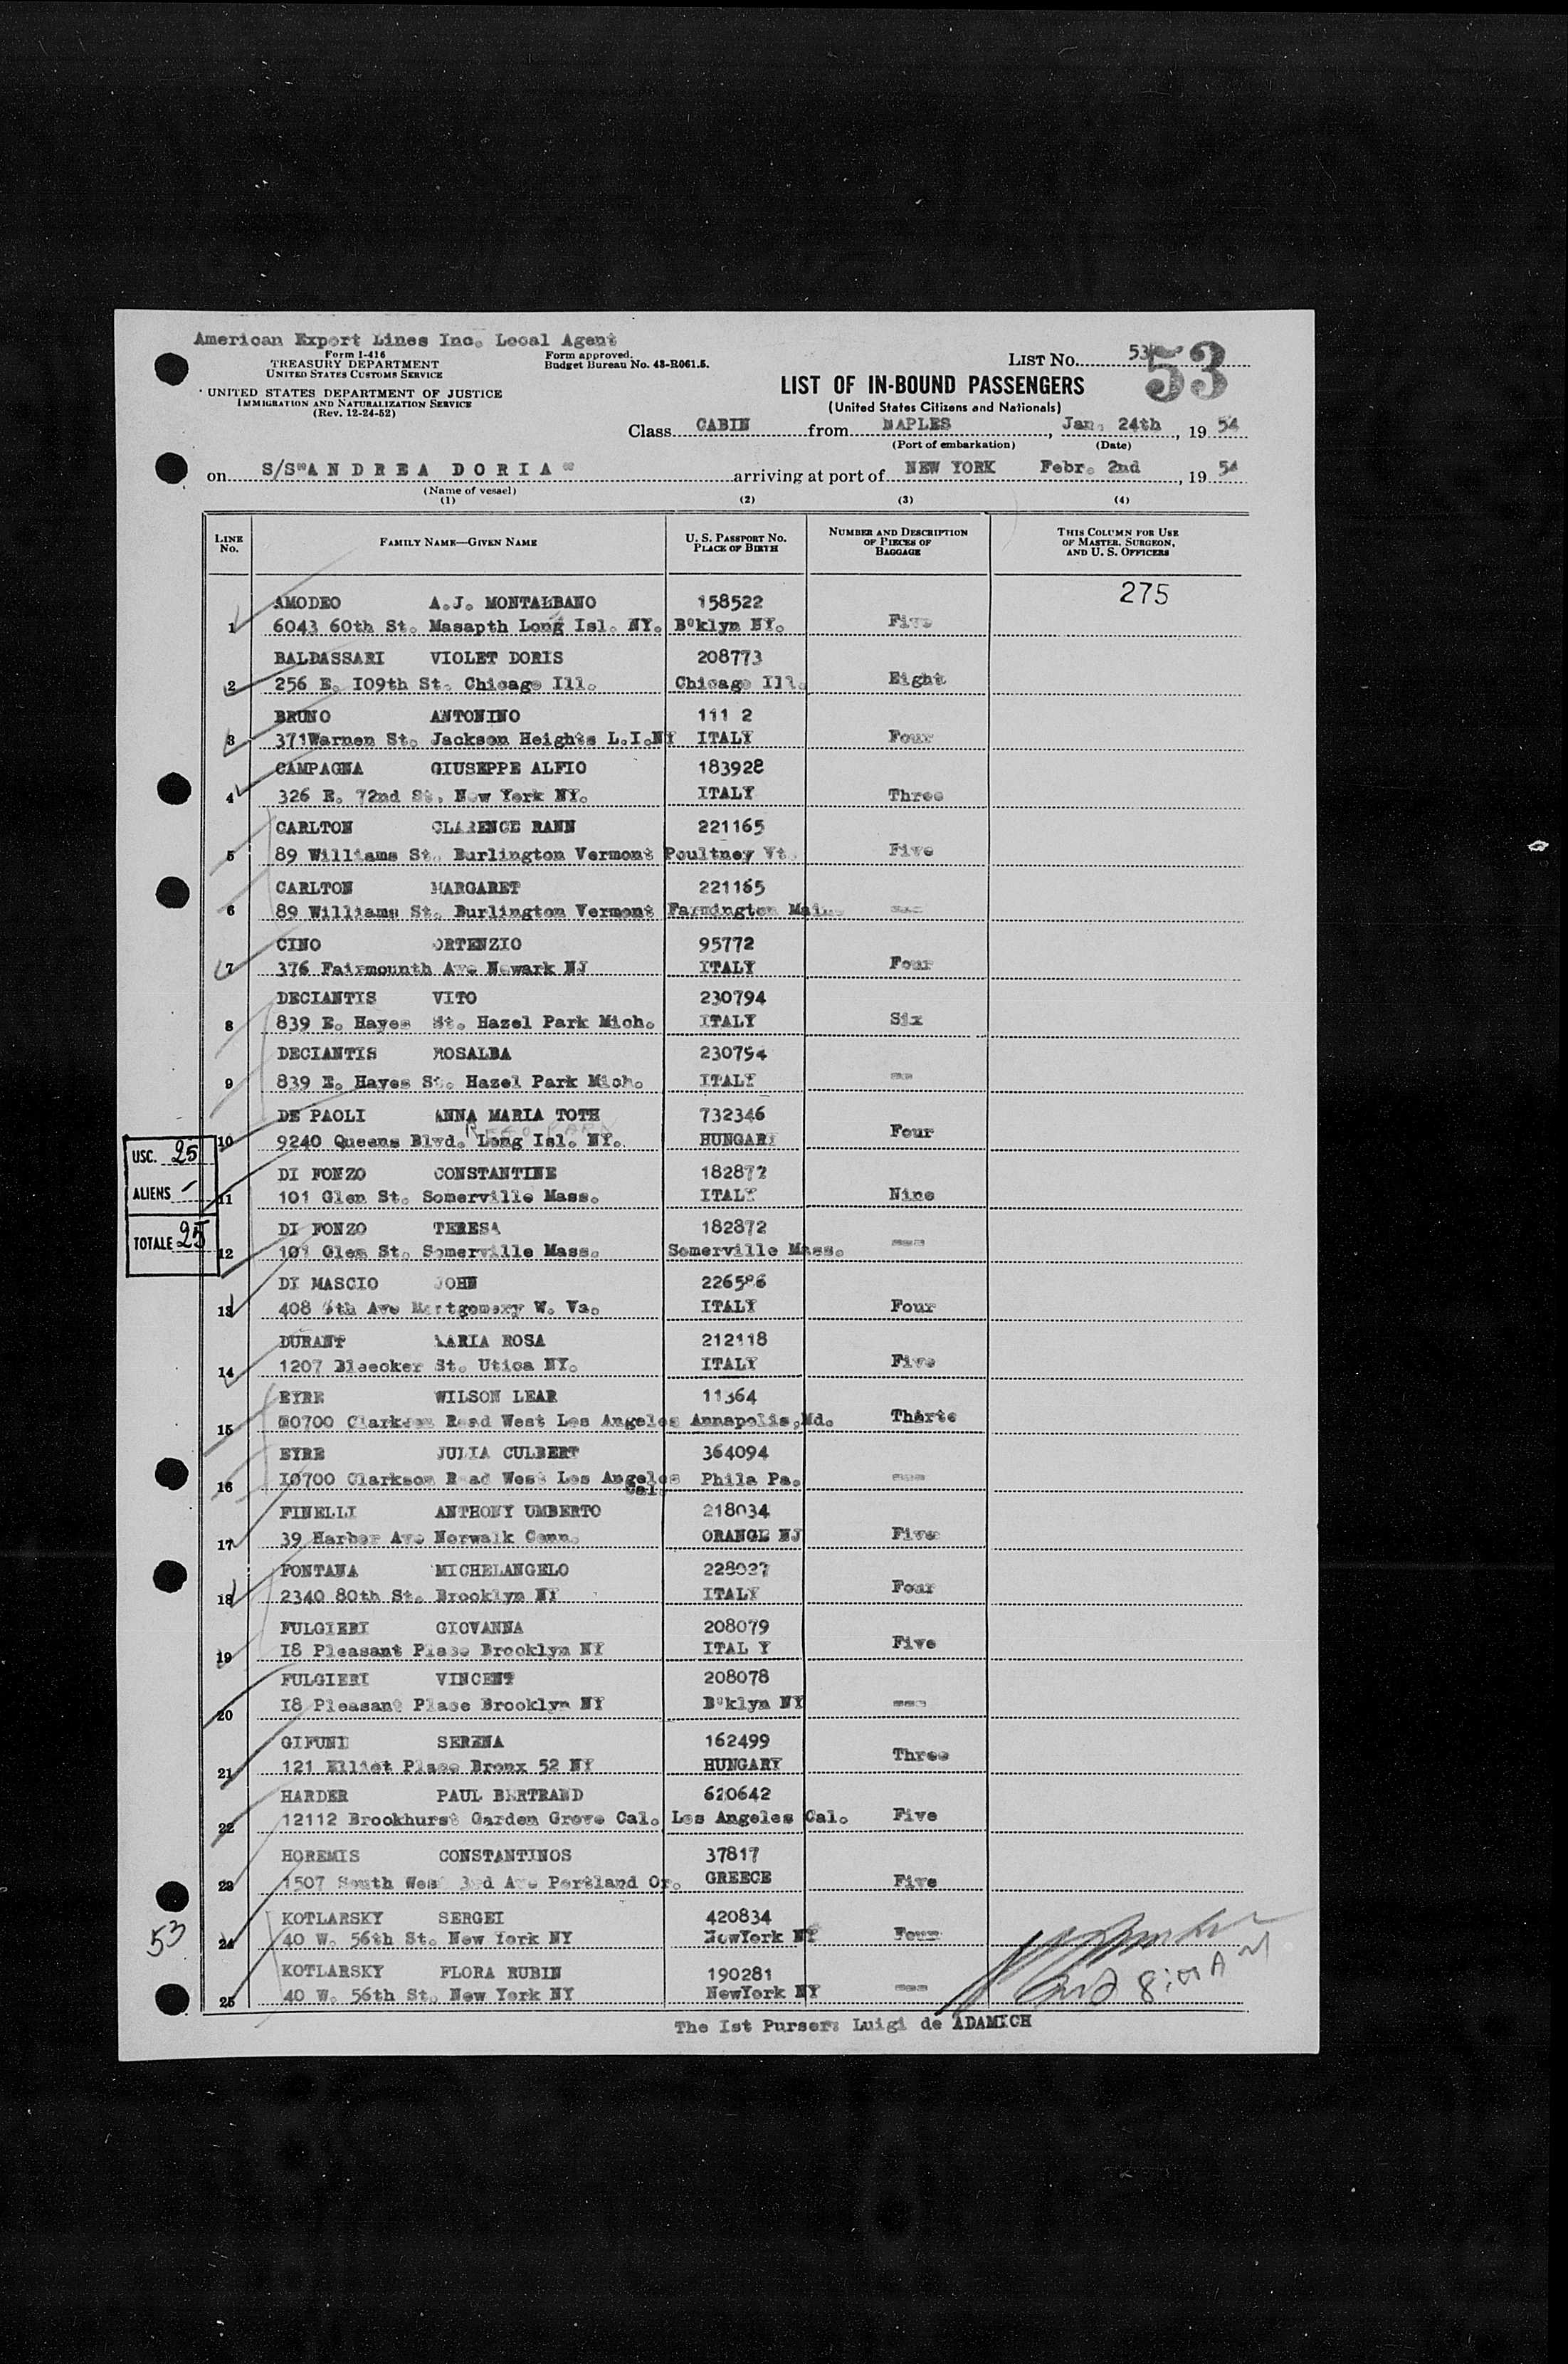 American Export Lines Inc. Local Agent
Form I-416
TREASURY DEPARTMENT
UNITED STATES CUSTOMS SERVICE
UNITED STATES DEPARTMENT OF JUSTICE
IMMIGRATION AND NATURALIZATION SERVICE
(Rev. 12-24-52)
Form approved.
Budget Bureau No. 43-R061.5.
LIST No. 53
53
LIST OF IN-BOUND PASSENGERS
(United States Citizens and Nationals)
Class CABIN from NAPLES, Jan. 24th, 19 54
(Port of embarkation) (Date)
on S/S"ANDREA DORIA" arriving at port of NEW YORK Febr. 2nd, 19 54
(Name of vessel)
(1) (2) (3) (4)
LINE No. FAMILY NAME—GIVEN NAME U. S. PASSPORT NO. PLACE OF BIRTH NUMBER AND DESCRIPTION OF PIECES OF BAGGAGE THIS COLUMN FOR USE OF MASTER, SURGEON, AND U. S. OFFICERS
275
AMODEO A.J. MONTALBANO 158522
1 6043 60th St. Masapth Long Isl. NY. B°klyn NY. Five
BALDASSARI VIOLET DORIS 208773
2 256 E. I09th St. Chicago Ill. Chicago Ill. Eight
BRUNO ANTONINO 111 2
3 371Warnen St. Jackson Heights L.I.NY ITALY Four
CAMPAGNA GIUSEPPE ALFIO 183928
4 326 E. 72nd St. New York NY. ITALY Three
CARLTON CLARENCE RANN 221165
5 89 Williams St. Burlington Vermont Poultney Vt. Five
CARLTON MARGARET 221165
6 89 Williams St. Burlington Vermont Farmington Maine ---
CINO ORTENZIO 95772
7 376 Fairmounth Ave Newark NJ ITALY Four
DECIANTIS VITO 230794
8 839 E. Hayes St. Hazel Park Mich. ITALY Six
DECIANTIS ROSALBA 230794
9 839 E. Hayes St. Hazel Park Mich. ITALY ---
DE PAOLI ANNA MARIA TOTH 732346
REGO PARK
10 9240 Queens Blvd. Long Isl. NY. HUNGARY Four
DI FONZO CONSTANTINE 182872
11 101 Glen St. Somerville Mass. ITALY Nine
DI FONZO TERESA 182872
12 101 Glen St. Somerville Mass. Somerville Mass. ---
DI MASCIO JOHN 226586
13 408 6th Ave Montgomery W. Va. ITALY Four
DURANT MARIA ROSA 212118
14 1207 Bleecker St. Utica NY. ITALY Five
EYRE WILSON LEAR 11364
15 I0700 Clarkson Road West Los Angelos Annapolis,Md. Thirte
EYRE JULIA CULBERT 364094
16 I0700 Clarkson Road West Los Angelos Phila Pa. ---
Cal.
FINELLI ANTHONY UMBERTO 218034
17 39 Harbor Ave Norwalk Conn. ORANGE NJ Five
FONTANA MICHELANGELO 228027
18 2340 80th St. Brooklyn NY ITALY Four
FULGIERI GIOVANNA 208079
19 I8 Pleasant Place Brooklyn NY ITAL Y Five
FULGIERI VINCENT 208078
20 I8 Pleasant Place Brooklyn NY B°klyn NY ---
GIFUNI SERENA 162499
21 121 Elliot Place Bronx 52 NY HUNGARY Three
HARDER PAUL BERTRAND 620642
22 12112 Brookhurst Garden Grove Cal. Los Angeles Cal. Five
HOREMIS CONSTANTINOS 37817
23 1507 South West 3rd Ave Portland Or. GREECE Five
KOTLARSKY SERGEI 420834
24 40 W. 56th St. New York NY NewYork NY Four
KOTLARSKY FLORA RUBIN 190281
25 40 W. 56th St. New York NY NewYork NY ---
USC. 25
ALIENS -
TOTALE 25
53
The Ist Purser: Luigi de ADAMICH